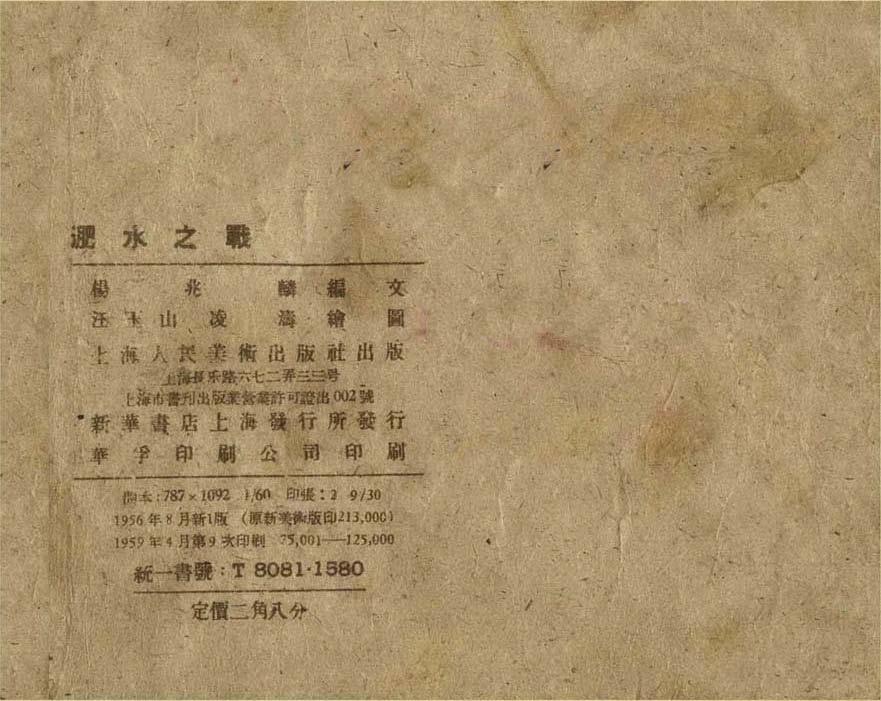 淝水之戰
楊兆麟編文
汪玉山 凌濤繪圖
上海人民美術出版社出版
上海長乐路六七二弄三三号
上海市書刊出版業營業許可證出002號
新華書店上海發行所發行
華孚印刷公司印刷
開本:787×1092 1/60 印張:2 9/30
1956年8月新1版 (原新美術版印213,000)
1959年4月第9次印刷 75,001——125,000
統一書號:T 8081·1580
定價二角八分